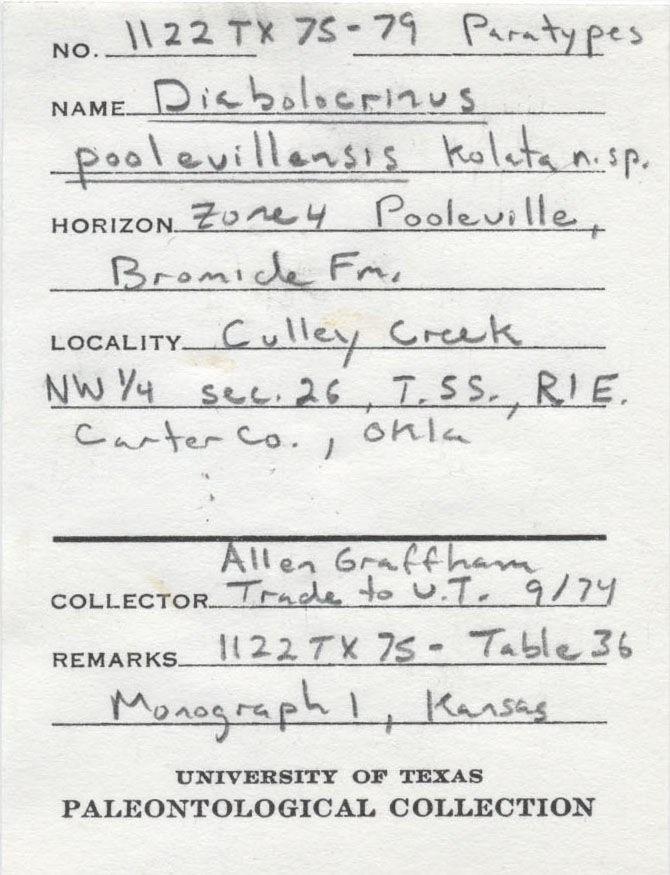 NO. 1122 TX 75-79 Paratypes
NAME Diabolocrinus
poolevillensis Kolata n.sp.
HORIZON Zone 4 Pooleville,
Bromide Fm.
LOCALITY Culley Creek
NW 1/4 sec. 26, T.5S., R1E.
Carter Co., Okla
Allen Graffham
COLLECTOR Trade to U.T. 9/74
REMARKS 1122 TX 75 - Table 36
Monograph 1, Kansas
UNIVERSITY OF TEXAS
PALEONTOLOGICAL COLLECTION